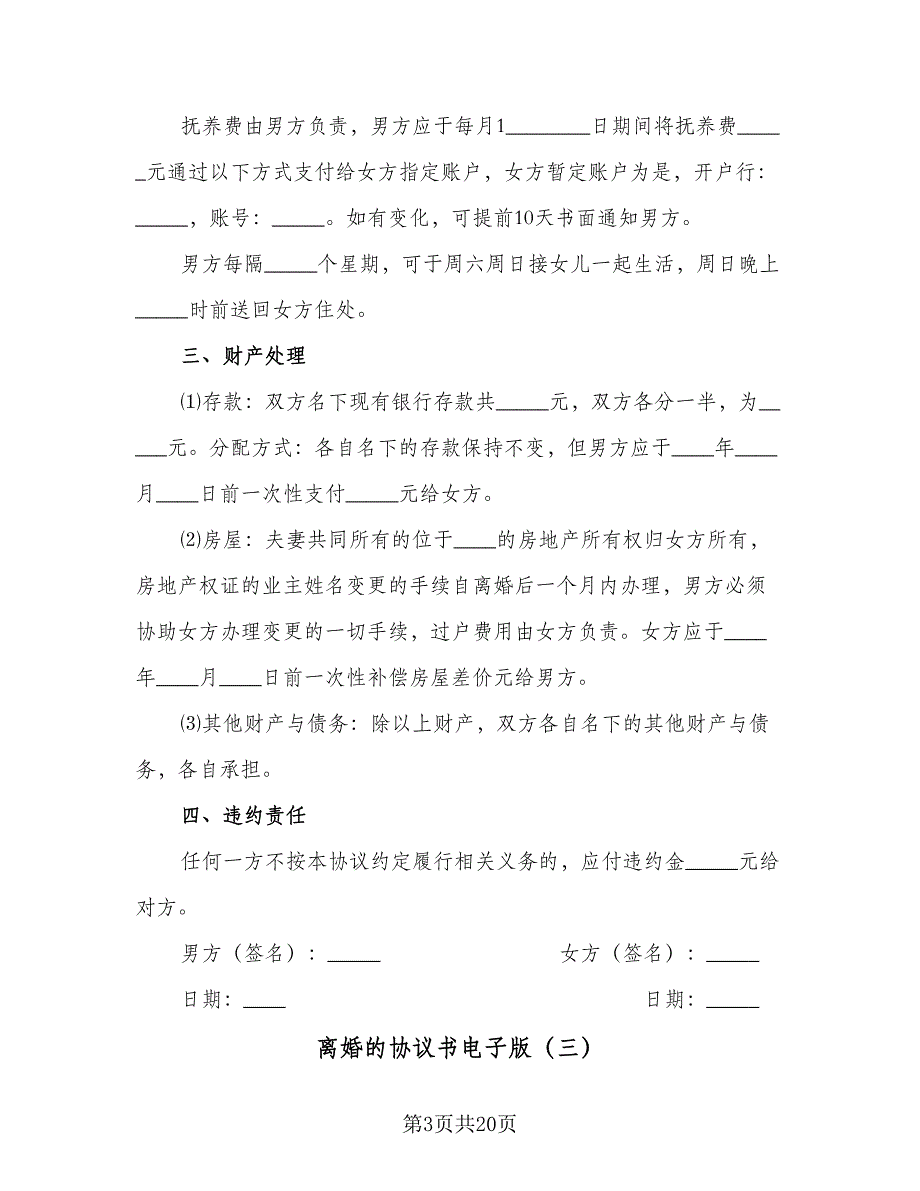 抚养费由男方负责，男方应于每月1________日期间将抚养费____
_元通过以下方式支付给女方指定账户，女方暂定账户为是，开户行：
_____，账号：_____。如有变化，可提前10天书面通知男方。
男方每隔_____个星期，可于周六周日接女儿一起生活，周日晚上
_____时前送回女方住处。
三、财产处理
⑴存款：双方名下现有银行存款共_____元，双方各分一半，为__
___元。分配方式：各自名下的存款保持不变，但男方应于____年____
月____日前一次性支付_____元给女方。
⑵房屋：夫妻共同所有的位于____的房地产所有权归女方所有，
房地产权证的业主姓名变更的手续自离婚后一个月内办理，男方必须
协助女方办理变更的一切手续，过户费用由女方负责。女方应于____
年____月____日前一次性补偿房屋差价元给男方。
⑶其他财产与债务：除以上财产，双方各自名下的其他财产与债
务，各自承担。
四、违约责任
任何一方不按本协议约定履行相关义务的，应付违约金_____元给
对方。
男方（签名）：_____ 女方（签名）：_____
日期：____ 日期：_____
离婚的协议书电子版（三）
第3页共20页